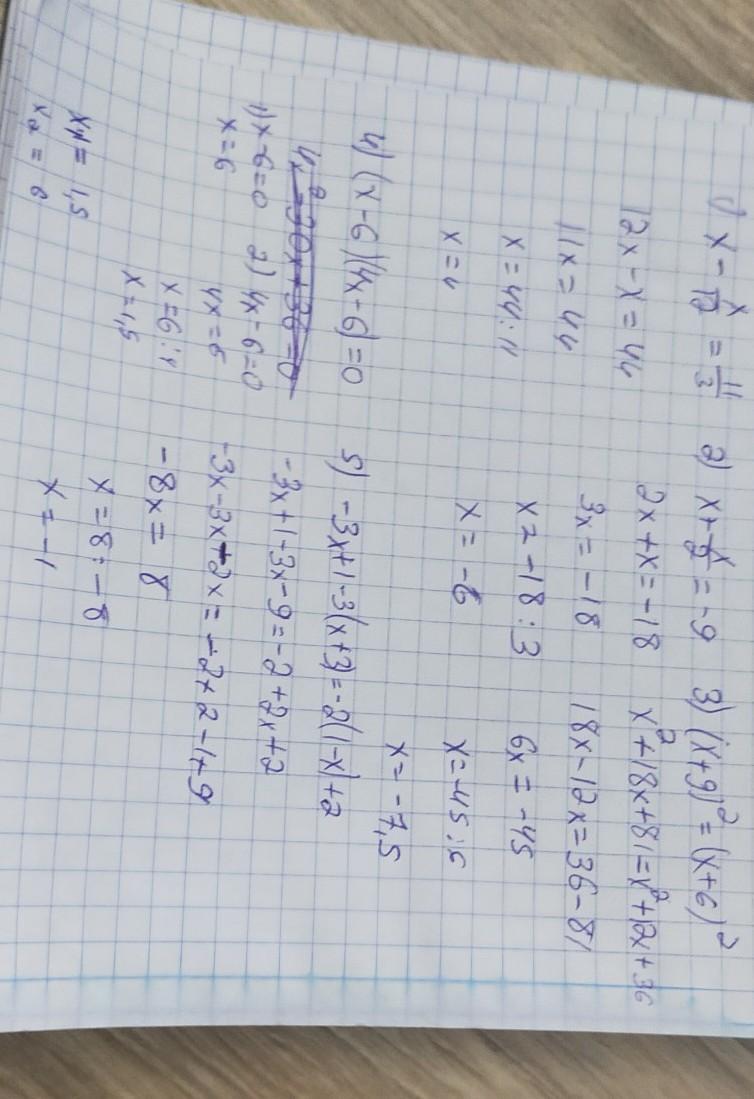 1) x - x/12 = 11/3
12x - x = 44
11x = 44
x = 44:11
x = 4
2) x + x/2 = -9
2x + x = -18
3x = -18
x = -18:3
x = -6
3) (x+9)² = (x+6)²
x²+18x+81=x²+12x+36
18x-12x=36-81
6x = -45
x = -45:6
x = -7,5
4) (x-6)(4x-6)=0
4x²-30x+36=0
1) x-6=0
x=6
2) 4x-6=0
4x=6
x=6:4
x=1,5
x1 = 1,5
x2 = 6
5) -3x+1-3(x+3)=-2(1-x)+2
-3x+1-3x-9=-2+2x+2
-3x-3x-2x=-2+2-1+9
-8x = 8
x = 8:-8
x = -1